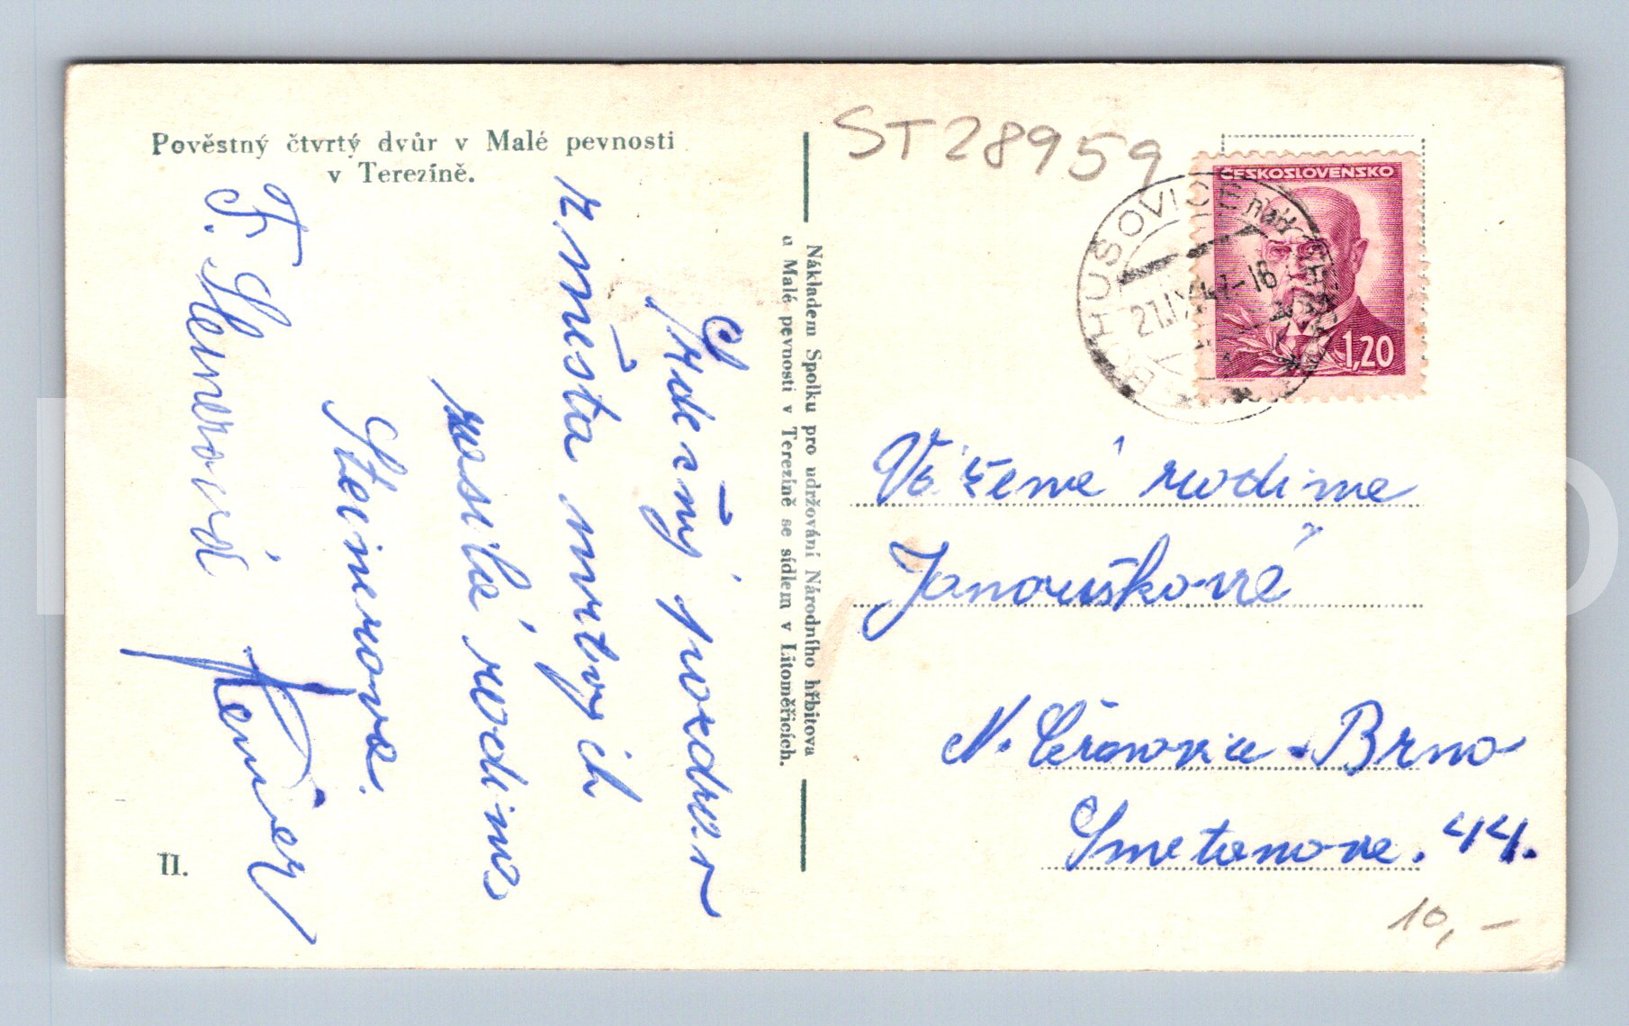 Pověstný čtvrtý dvůr v Malé pevnosti
v Terezíně.
Srdečný pozdrav
z města mrtvých
zasílá rodina
Steinerova.
F. Steinerová
II.
Nákladem Spolku pro udržování Národního hřbitova
u Malé pevnosti v Terezíně se sídlem v Litoměřicích.
ST28959
ČESKOSLOVENSKO
1,20
BOHUŠOVICE nad OHŘÍ
21.IX.47-16
Vážené rodině
Janouškové
N. Černovice - Brno
Smetanova. 44.
10,-